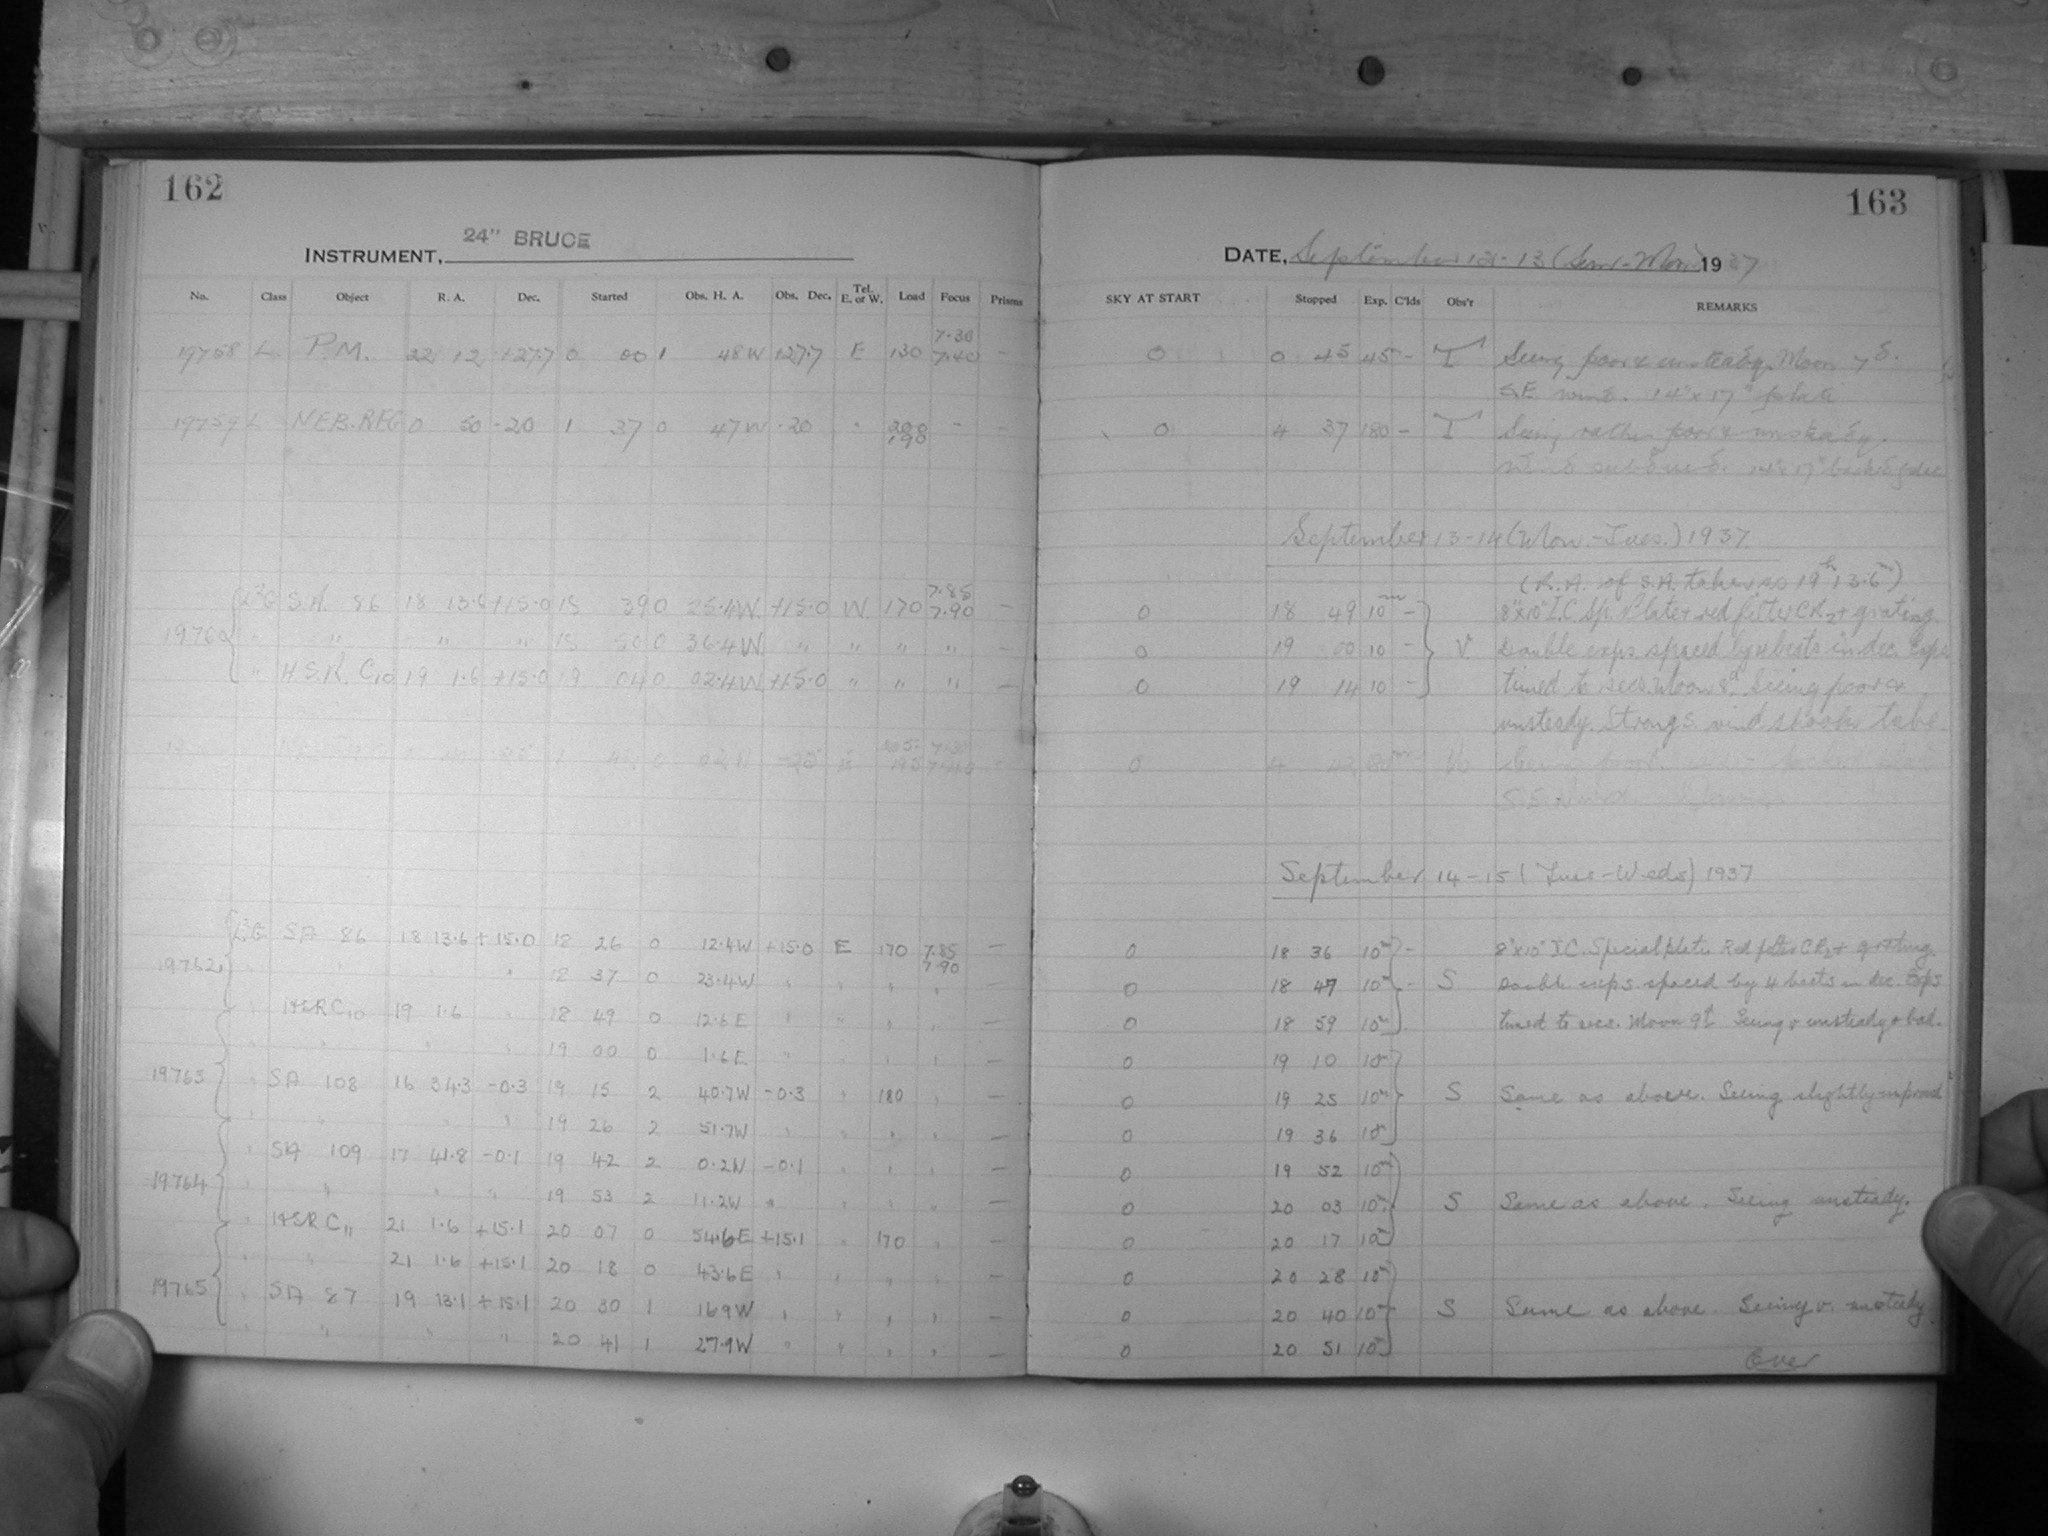 162
INSTRUMENT, 24" BRUCE
No. Class Object R. A. Dec. Started Obs. H. A. Obs. Dec. Tel. E. or W. Load Focus Prisms
19758 L P.M. 22 12 +27.7 0 00 1 48W +27.7 E 130 7.30 7.40 –
19759 L NEB. REG 0 50 -20 1 37 0 47W -20 " 200 190 " –
S.A. 86 18 13.6 +15.0 18 39 0 25.4W +15.0 W 170 7.85 7.90 –
" " " " 18 50 0 36.4W " " " " –
" H.S.R. C10 19 1.6 +15.0 19 04 0 02.4W +15.0 " " " –
SA 86 18 13.6 +15.0 18 26 0 12.4W +15.0 E 170 7.85 7.90 –
19762 " " 18 37 0 23.4W " " " " –
" HSR C10 19 1.6 " 18 49 0 12.6E " " " " –
" " " " 19 00 0 1.6E " " " " –
19763 " SA 108 16 34.3 -0.3 19 15 2 40.7W -0.3 " 180 " –
" " " " 19 26 2 51.7W " " " " –
" SA 109 17 41.8 -0.1 19 42 2 0.2W -0.1 " " " –
19764 " " " " 19 53 2 11.2W " " " " –
" HSR C11 21 1.6 +15.1 20 07 0 54.6E +15.1 " 170 " –
" " 21 1.6 +15.1 20 18 0 43.6E " " " " –
19765 " SA 87 19 13.1 +15.1 20 30 1 16.9W " " " " –
" " " " 20 41 1 27.9W " " " " –
163
DATE, September 12-13 (Sun-Mon) 1937
SKY AT START Stopped Exp. C'lds Obs'r REMARKS
0 0 45 45 – T Seeing poor & unsteady. Moon 7d.
SE wind. 14"x17" plate
0 4 37 180 – T Seeing rather poor & unsteady.
Wind subdued. 14"x17" backed plate
September 13-14 (Mon.-Tues.) 1937
(R.A. of S.A. taken as 19h 13.6m)
0 18 49 10m – 8"x10" I.C. Sp. Plate + red filter CR2 + grating.
0 19 00 10 – V. Double exps. spaced by 4 beats in dec. Exps
0 19 14 10 – timed to secs. Moon 8d. Seeing poor &
unsteady. Strong S. wind shook tube
0 4 42 Seeing poor.
S.E. Wind
September 14-15 (Tues-Weds) 1937
0 18 36 10m – 8"x10" I.C. Special plate Red filter CR2 + grating.
0 18 47 10m – S Double exps. spaced by 4 beats in dec. Exps
0 18 59 10m timed to secs. Moon 9d. Seeing v unsteady & bad.
0 19 10 10m
0 19 25 10m S Same as above. Seeing slightly improved
0 19 36 10m
0 19 52 10m
0 20 03 10m S Same as above. Seeing unsteady.
0 20 17 10m
0 20 28 10m
0 20 40 10m S Same as above. Seeing v. unsteady
0 20 51 10m
Over